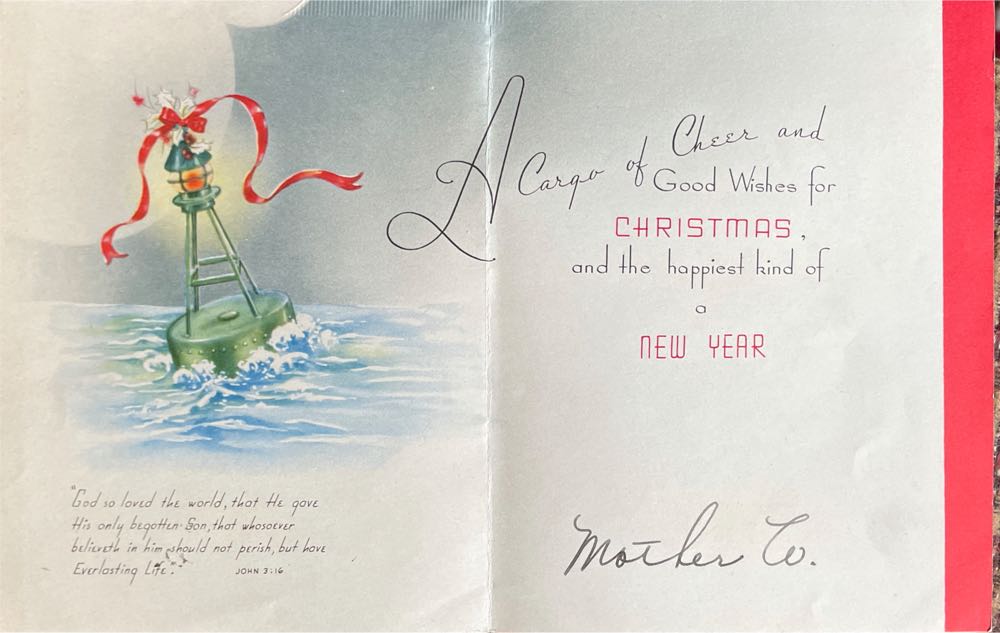 A Cargo of Cheer and
Good Wishes for
CHRISTMAS,
and the happiest kind of
a
NEW YEAR
Mother W.
"God so loved the world, that He gave
His only begotten Son, that whosoever
believeth in him should not perish, but have
Everlasting Life".
JOHN 3:16